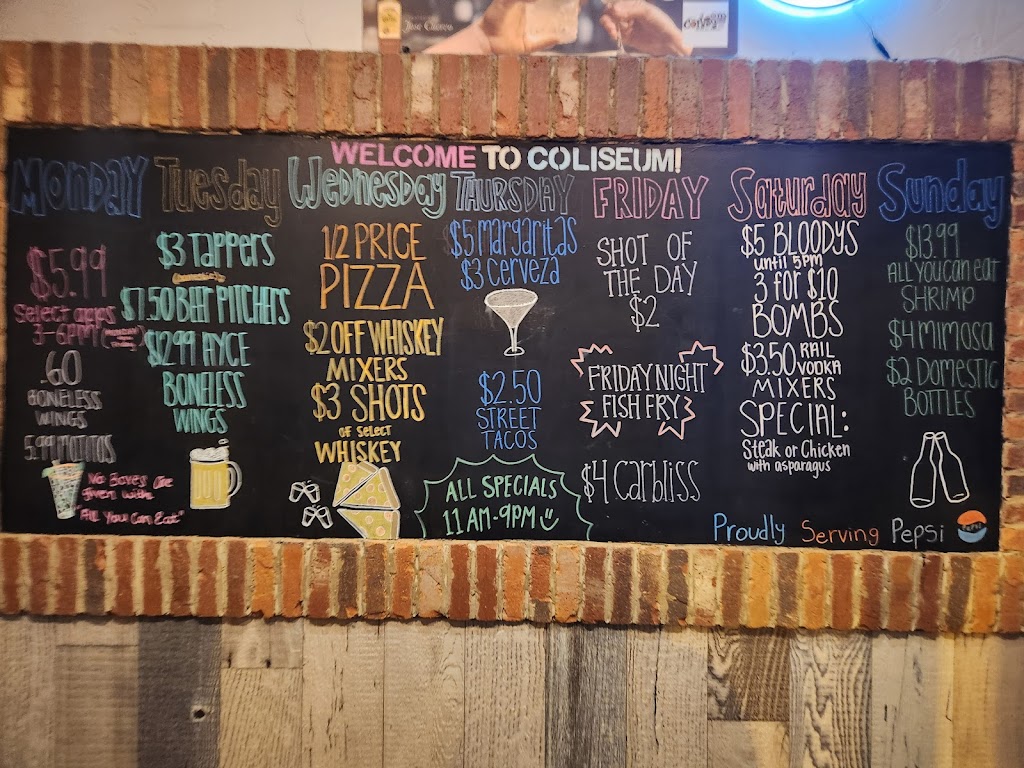 WELCOME TO COLISEUM!
MONDAY
$5.99
Select apps
3-6PM
.60
BONELESS
WINGS
5.99 MOJITOS
No Boxes are
given with
"All You Can Eat"
Tuesday
$3 TAPPERS
$7.50 BEER PITCHERS
$12.99 AYCE
BONELESS
WINGS
Wednesday
1/2 PRICE
PIZZA
$2 OFF WHISKEY
MIXERS
$3 SHOTS
of select
WHISKEY
THURSDAY
$5 margaritas
$3 cerveza
$2.50
STREET
TACOS
ALL SPECIALS
11AM-9PM
FRIDAY
SHOT OF
THE DAY
$2
FRIDAY NIGHT
FISH FRY
$4 carbliss
Saturday
$5 BLOODYS
until 5pm
3 for $10
BOMBS
$3.50 RAIL
VODKA
MIXERS
SPECIAL:
Steak or Chicken
with asparagus
Sunday
$13.99
ALL YOU CAN EAT
SHRIMP
$4 mimosa
$2 DOMESTIC
BOTTLES
Proudly Serving Pepsi
PEPSI